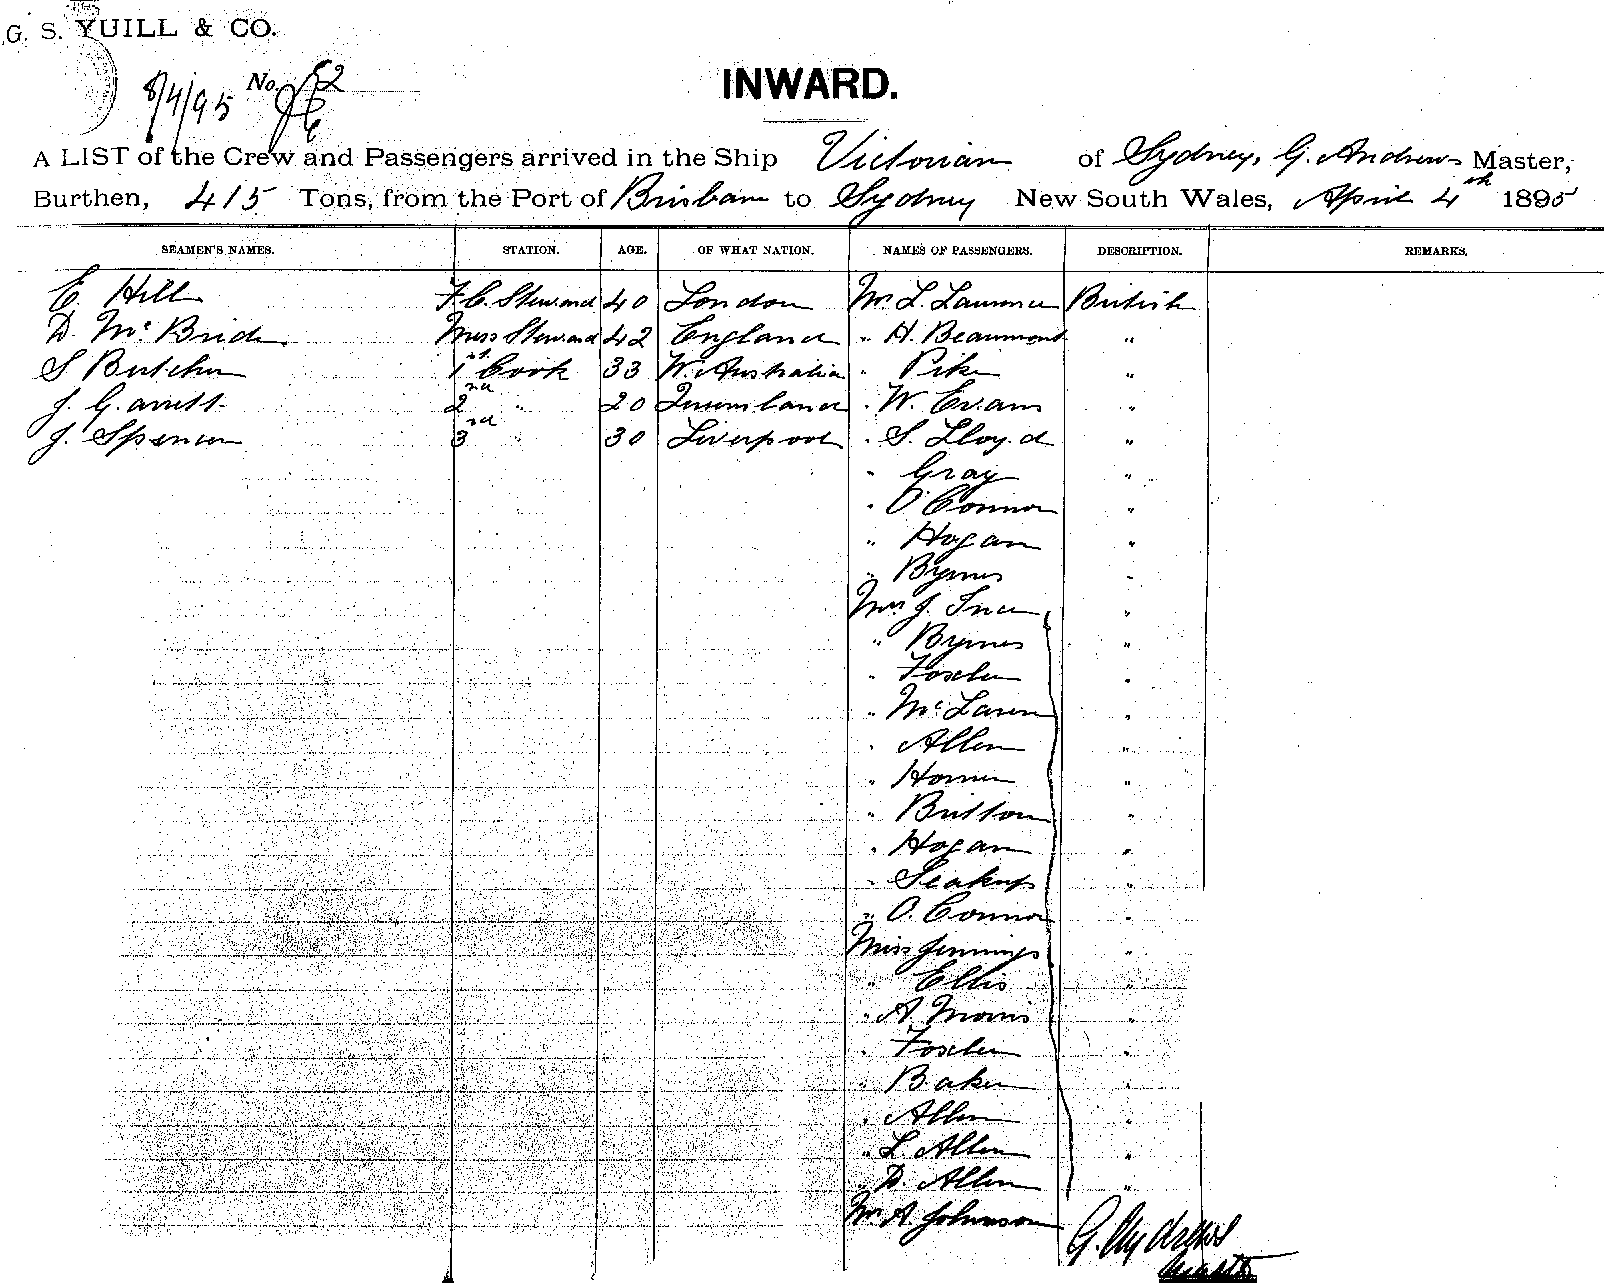 G. S. YUILL & CO.
8/4/95 No.
INWARD.
A LIST of the Crew and Passengers arrived in the Ship Victorian of Sydney, G. Andrews Master,
Burthen, 415 Tons, from the Port of Brisbane to Sydney New South Wales, April 4th 1895
SEAMEN'S NAMES. STATION. AGE. OF WHAT NATION. NAMES OF PASSENGERS. DESCRIPTION. REMARKS.
E. Hill F.C. Steward 40 London Mr L. Laurence British
D. McBride Mess Steward 42 England " H. Beaumont "
S Butcher 1st Cook 33 W. Australia " Pike "
J. Garrett 2nd " 20 Queensland " W. Evans "
J. Spencer 3rd " 30 Liverpool " S. Lloyd "
" Gray "
" O'Connor "
" Hogan "
" Byrnes "
Mrs J. "
" Byrnes "
" "
" McLaren "
" Allen "
" "
" Britton "
" Hogan "
" "
" O. Connor "
Miss Jennings "
" Ellis "
" A. Morris "
" "
" Baker "
" Allen "
" L Allen "
" D. Allen "
Mr A Johnson
G. Andrews
Master